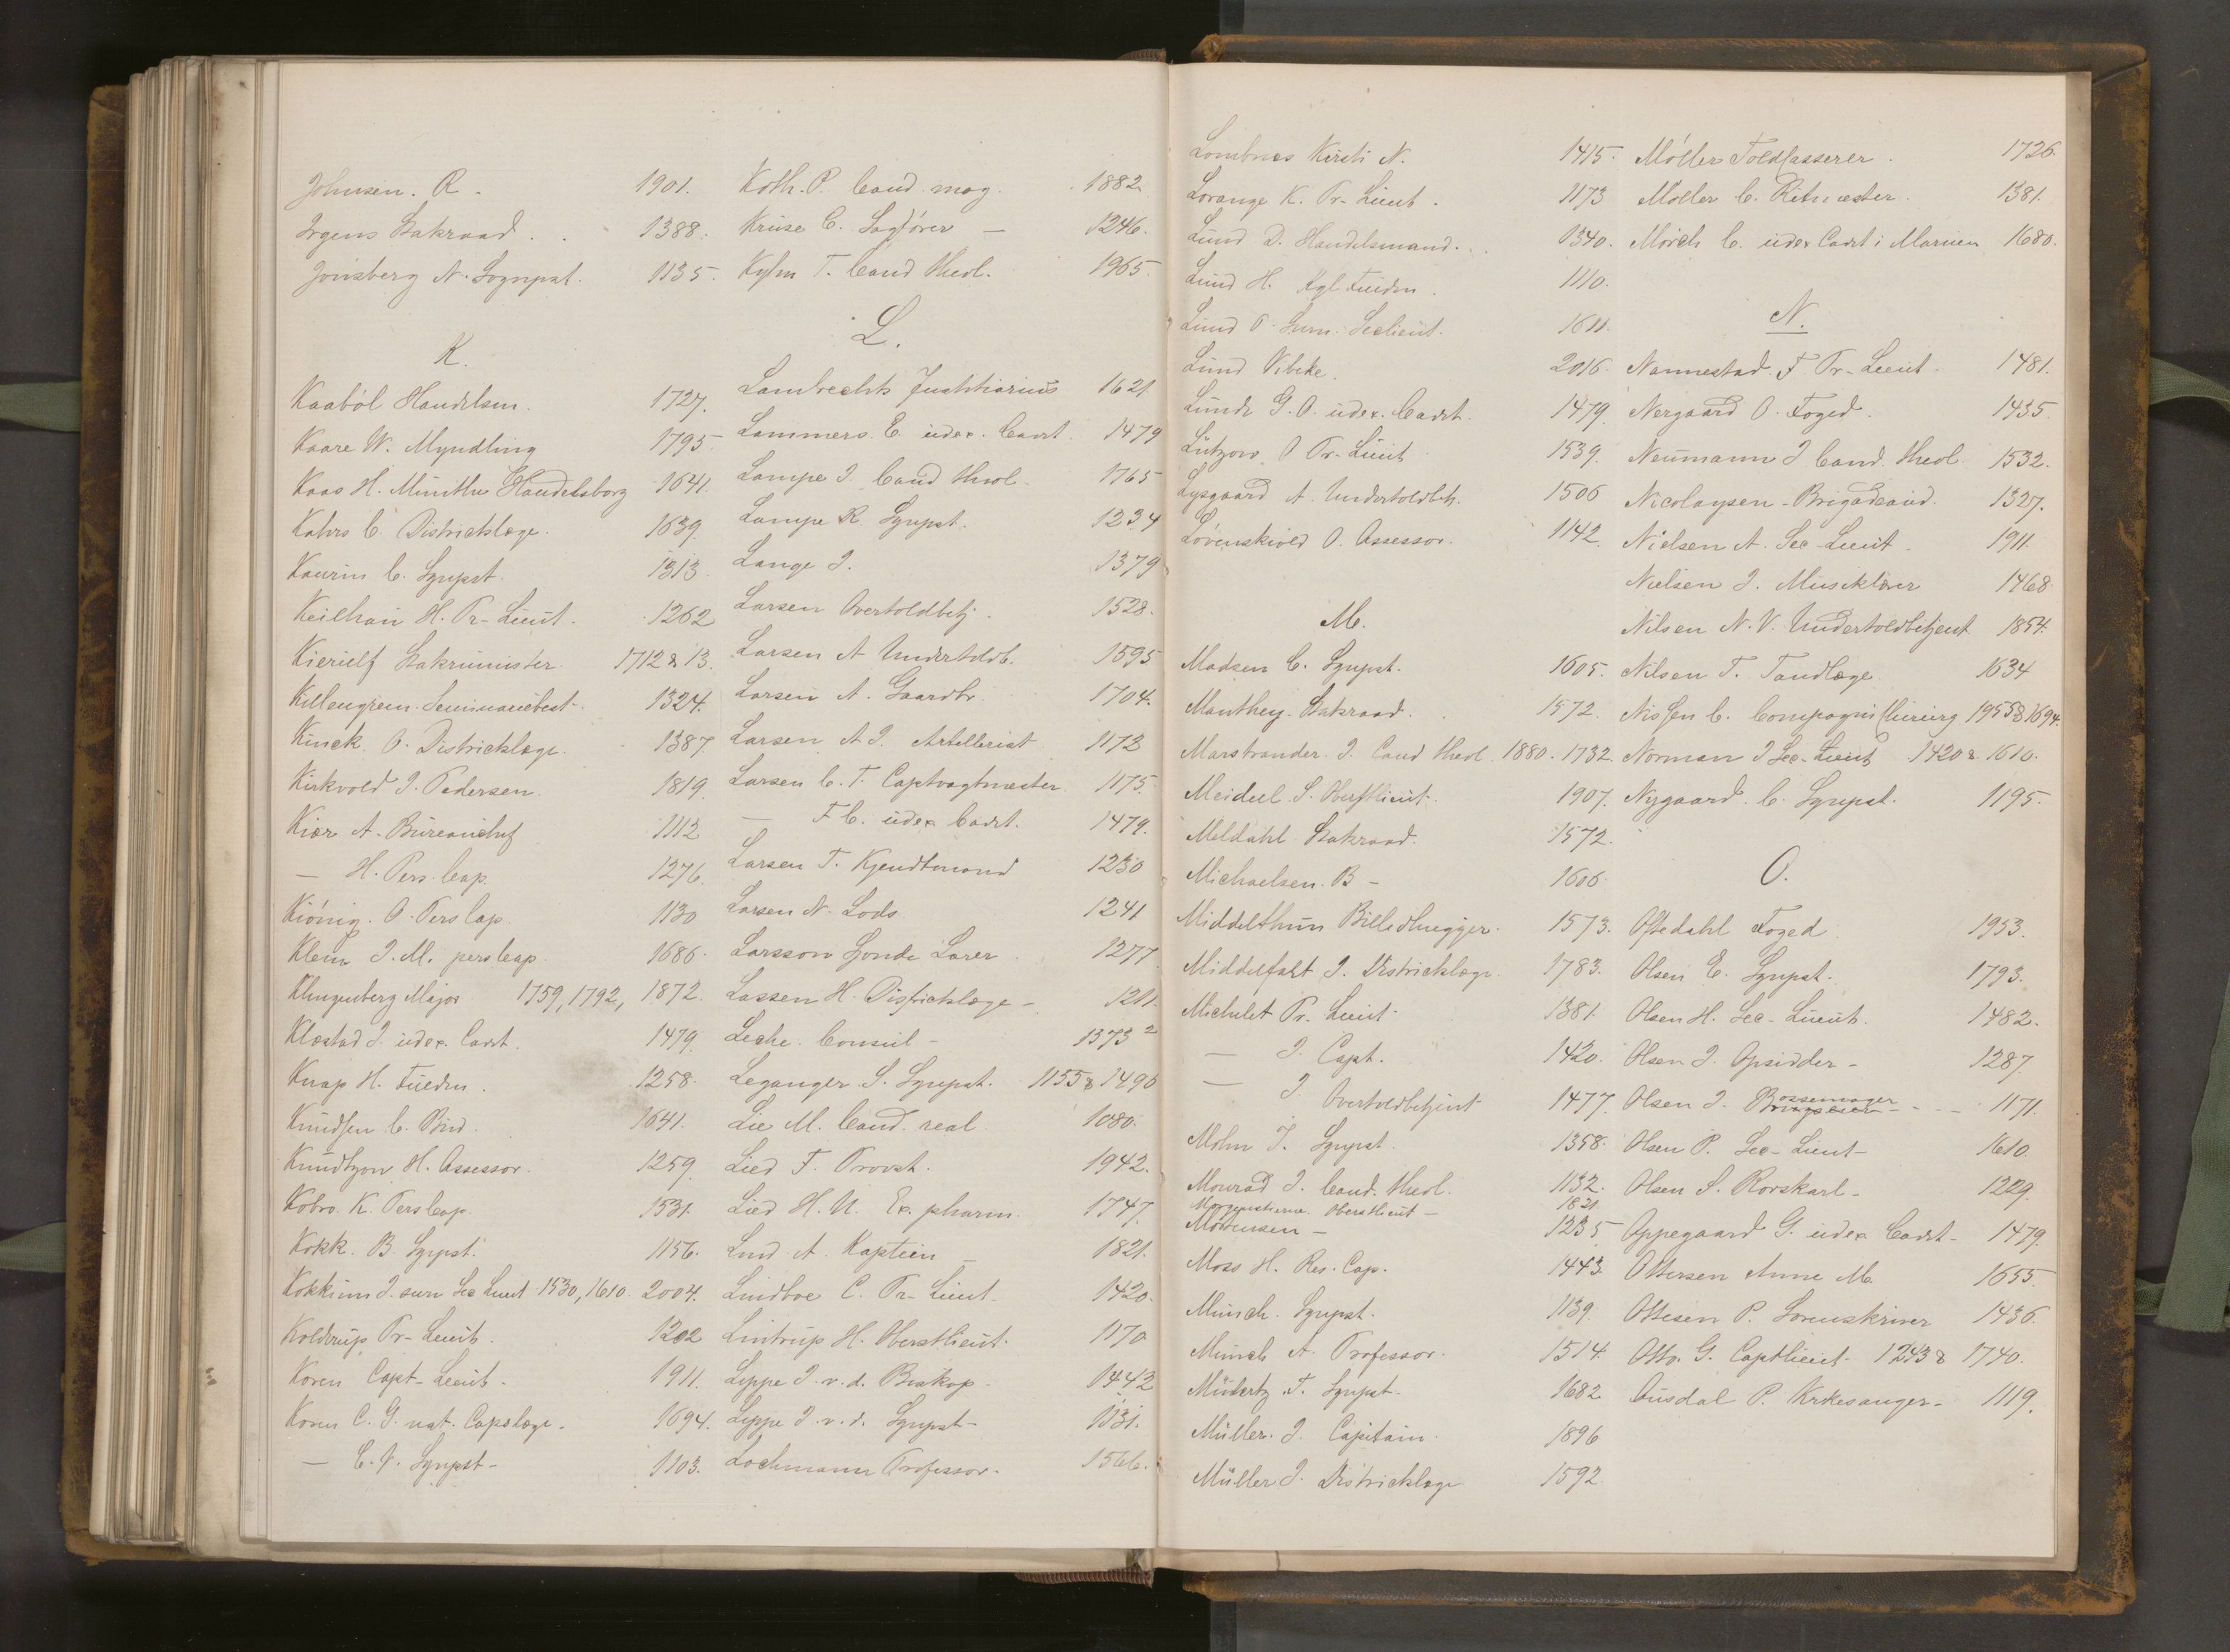 Johnsen. R. 1901.
Irgens Statsraad. 1388.
Jonsberg N. Sognpst. 1135.
K.
Kaabøl Handelsm. 1727.
Kaare W. Myndling 1795
Kaas H. Münthe Handelsborg 1641.
Kahrs C. Districtslæge. 1639.
Kaurin C. Sgnpst. 1313.
Keilhau H. Pr-Lieut. 1262
Kierulf Statsminister 1712 & 13.
Killengreen. Seminariebest. 1324.
Kinck. O. Districtslæge. 1387
Kirkvold J. Pedersen. 1819.
Kiær A. Bureauchef 1112
— H. Pers. Cap. 1276.
Kiønig. O. Pers Cap. 1130
Klem J. M. pers Cap. 1686.
Klingenberg Major 1759, 1792, 1872.
Kløstad J. udex. Cadt. 1479.
Knap H. Fuldm. 1258.
Knudsen C. Bud. 1641.
Knudtzon H. Assessor. 1259.
Kobro. K. Pers Cap. 1531.
Kokk. B. Sgnpst. 1156.
Kokkim J. surn Sec Lieut 1530, 1610. 2004.
Koldrup Pr-Lieut. 1202
Koren Capt-Lieut. 1911.
Koren C. G. nat. Capslæge. 1694.
— C. V. Sgnpst- 1103.
Koth. P. Cand. mag. 1882.
Kruse C. Sagfører — 1246.
Kyhn T. Cand theol. 1965.
L.
Lambrechts Justitiarius 1621
Lammers E. udex. Cadt. 1479
Lampe J. Cand theol. 1765
Lampe R. Sgnpst. 1234
Lange J. 1379
Larsen Overtoldbetj. 1528.
Larsen A Undertoldb. 1595
Larsen A. Gaardbr. 1704.
Larsen A J. Artillerist 1173
Larsen C. T. Captvagtmester 1175.
— F C. udex Cadt. 1479.
Larsen T. Kjendtmand 1230
Larsen N. Lods 1241
Larsson Sonde Lærer 1277
Lassen H. Districtslæge - 1211.
Leche. Consul - 1373²
Leganger. S. Sgnpst. 1155 & 1496
Lie M. Cand. real. 1080.
Lied F. Provst. 1942.
Lied H. U. Ex. pharm. 1747.
Lind A. Kaptein 1821.
Lindboe C. Pr-Lieut. 1420.
Lintrup H. Oberstlieut. 1170
Lippe J. v. d. Biskop 1442
Lippe J. v. d. Sgnpst- 1131.
Lochmann Professor. 1566.
Lombnes Kirsti N. 1415.
Lorange K. Pr-Lieut. 1173
Lund D. Handelsmand. 1340.
Lund H. Kgl Fuldm. 1110.
Lund O Surn. Seclieut. 1611.
Lund Vibeke. 2016.
Lunde G. O. udex. Cadt. 1479.
Lützow O Pr-Lieut 1539.
Lysgaard A. Undertoldbtj. 1506
Løvenskiold O. Assessor. 1142.
M.
Madsen C. Sgnpst. 1605.
Manthey. Statsraad. 1572.
Marstrander. J. Cand theol. 1880. 1732.
Meidell S. Oberstlieut. 1907.
Meldahl Statsraad. 1572.
Michaelsen. B - 1606.
Middelthun Billedhugger. 1573.
Middelfart J. Districtslæge. 1783.
Michelet Pr. Lieut. 1381.
— J. Capt. 1420.
— J. Overtoldbetjent 1477.
Mohn J. Sgnpst. 1358.
Monrad J. Cand. theol. 1132.
Morgenstierne. Oberstlieut — 1821.
Mortensen — 1235
Moss H. Res. Cap. 1443.
Münch. Sgnpst. 1139.
Münch A. Professor. 1514.
Müntertz F. Sgnpst. 1682
Müller. J. Capitain. 1896
Müller J. Districtslæge 1592.
Møller Toldkasserer. 1726.
Møller C. Ritmester. 1381.
Mørch C. udex Cadt i Marinen 1680.
N.
Nannestad. F Pr-Lieut. 1481.
Nergaard O. Foged. 1435.
Neumann J Cand. theol 1532.
Nicolaysen - Brigadeaud. 1327.
Nielsen A. Sec-Lieut. 1911.
Nielsen J. Musiklærer 1468.
Nilsen N. V. Undertoldbetjent 1854.
Nilsen T. Tandlæge. 1634
Nissen C. Compagnichirurg 1955 & 1694.
Norman J Sec-Lieut 1420 & 1610.
Nygaard. C. Sgnpst. 1195.
O.
Oftedahl Foged 1953.
Olsen E. Sgnpst. 1793.
Olsen H. Sec-Lieut. 1482.
Olsen J. Opsidder - 1287.
Olsen J. Bøssemager 1171.
Olsen P. Sec-Lieut- 1610.
Olsen S. Rorskarl - 1229.
Oppegaard G. udex Cadt- 1479.
Ottersen Anne M. 1655.
Ottesen P. Sorenskriver 1436.
Otto. G. Captlieut- 1243 & 1740.
Ousdal P. Kirkesanger - 1119.